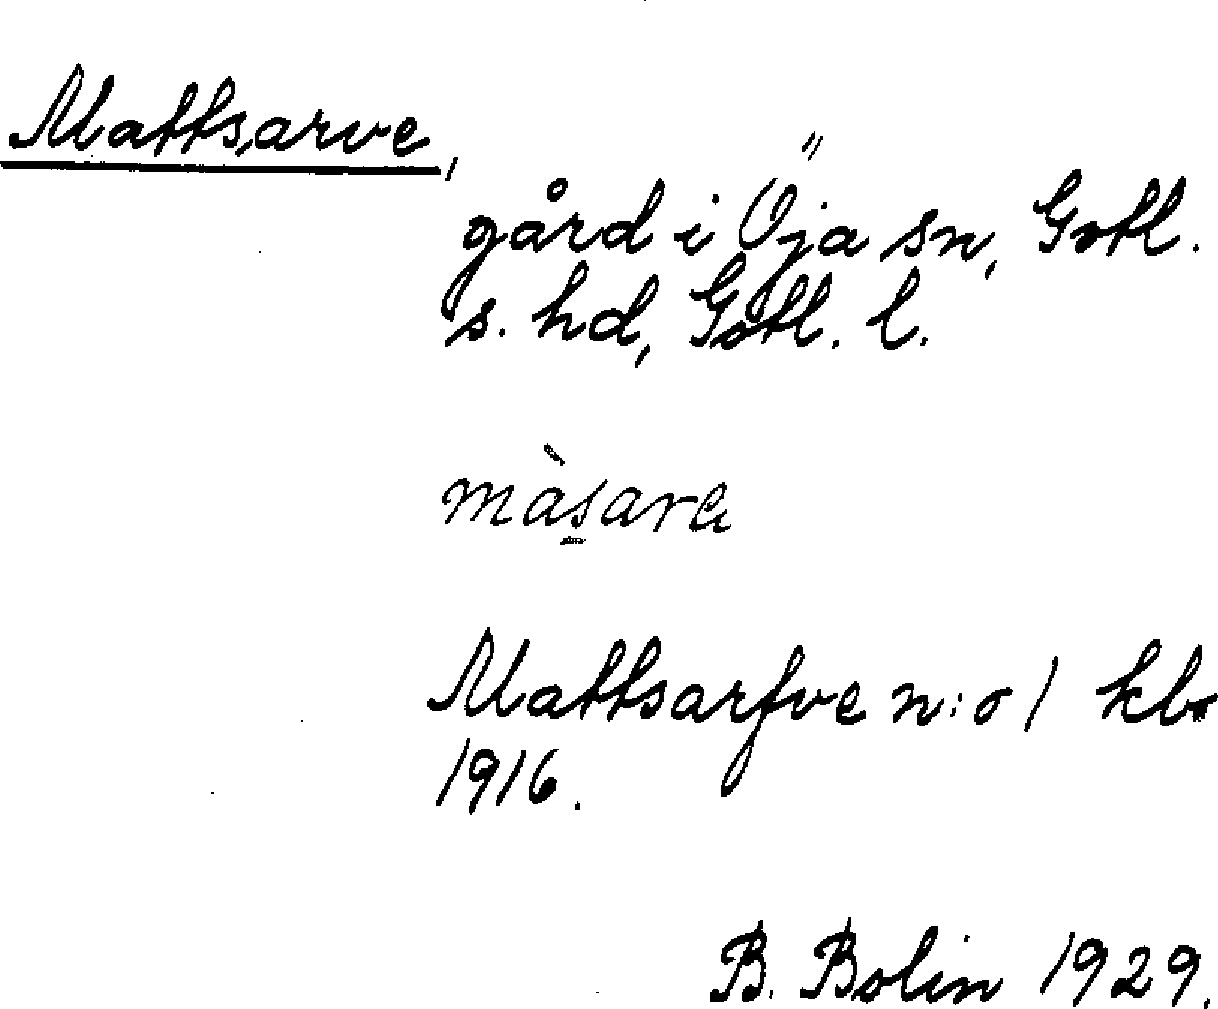 Mattsarve,
gård i Öja sn, Gotl.
s. hd, Gotl. l.
màsara
Mattsarfve n:o 1 kb
1916.
B. Bolin 1929.